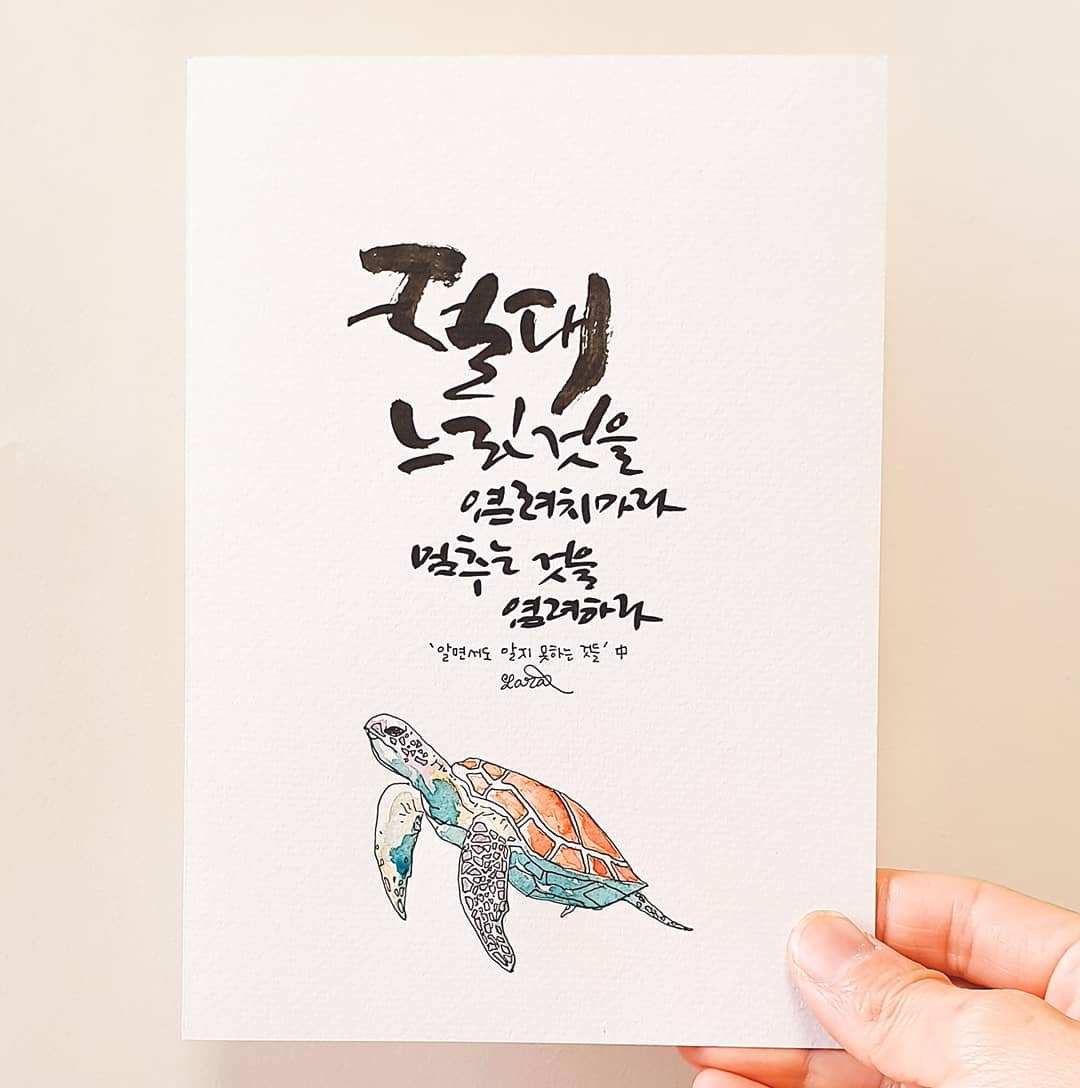 절대
느린것을
염려치마라
멈추는 것을
염려하라
'알면서도 알지 못하는 것들' 中
Lara